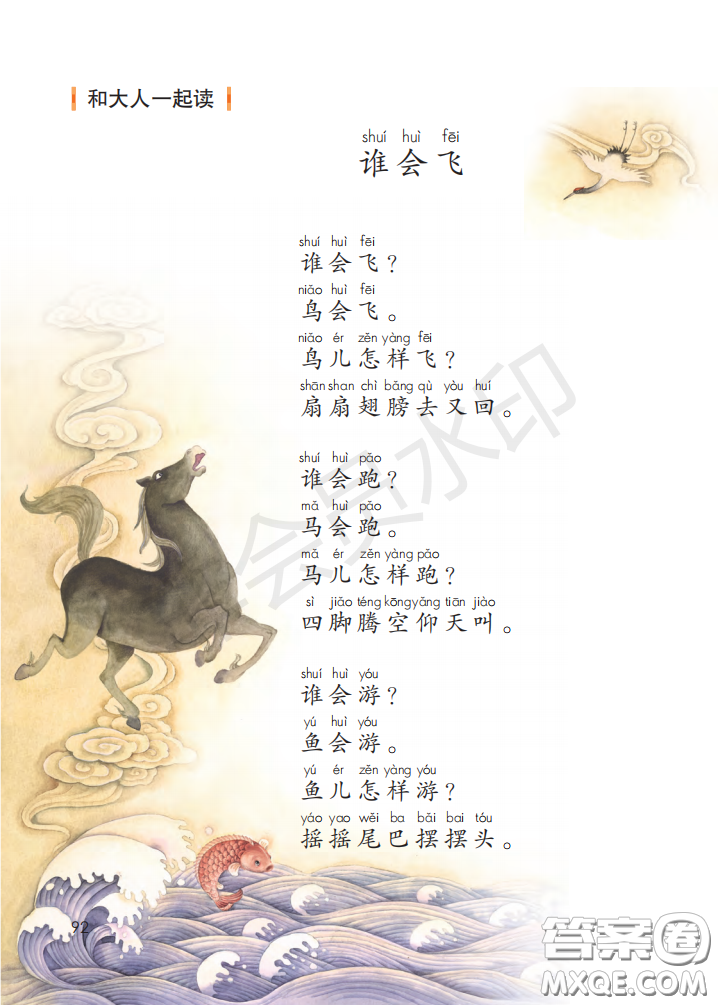 和大人一起读
shuí huì fēi
谁会飞
shuí huì fēi
谁会飞？
niǎo huì fēi
鸟会飞。
niǎo ér zěn yàng fēi
鸟儿怎样飞？
shān shan chì bǎng qù yòu huí
扇扇翅膀去又回。
shuí huì pǎo
谁会跑？
mǎ huì pǎo
马会跑。
mǎ ér zěn yàng pǎo
马儿怎样跑？
sì jiǎo téng kōng yǎng tiān jiào
四脚腾空仰天叫。
shuí huì yóu
谁会游？
yú huì yóu
鱼会游。
yú ér zěn yàng yóu
鱼儿怎样游？
yáo yao wěi ba bǎi bai tóu
摇摇尾巴摆摆头。
92
会员水印
答案卷
MXQE.COM